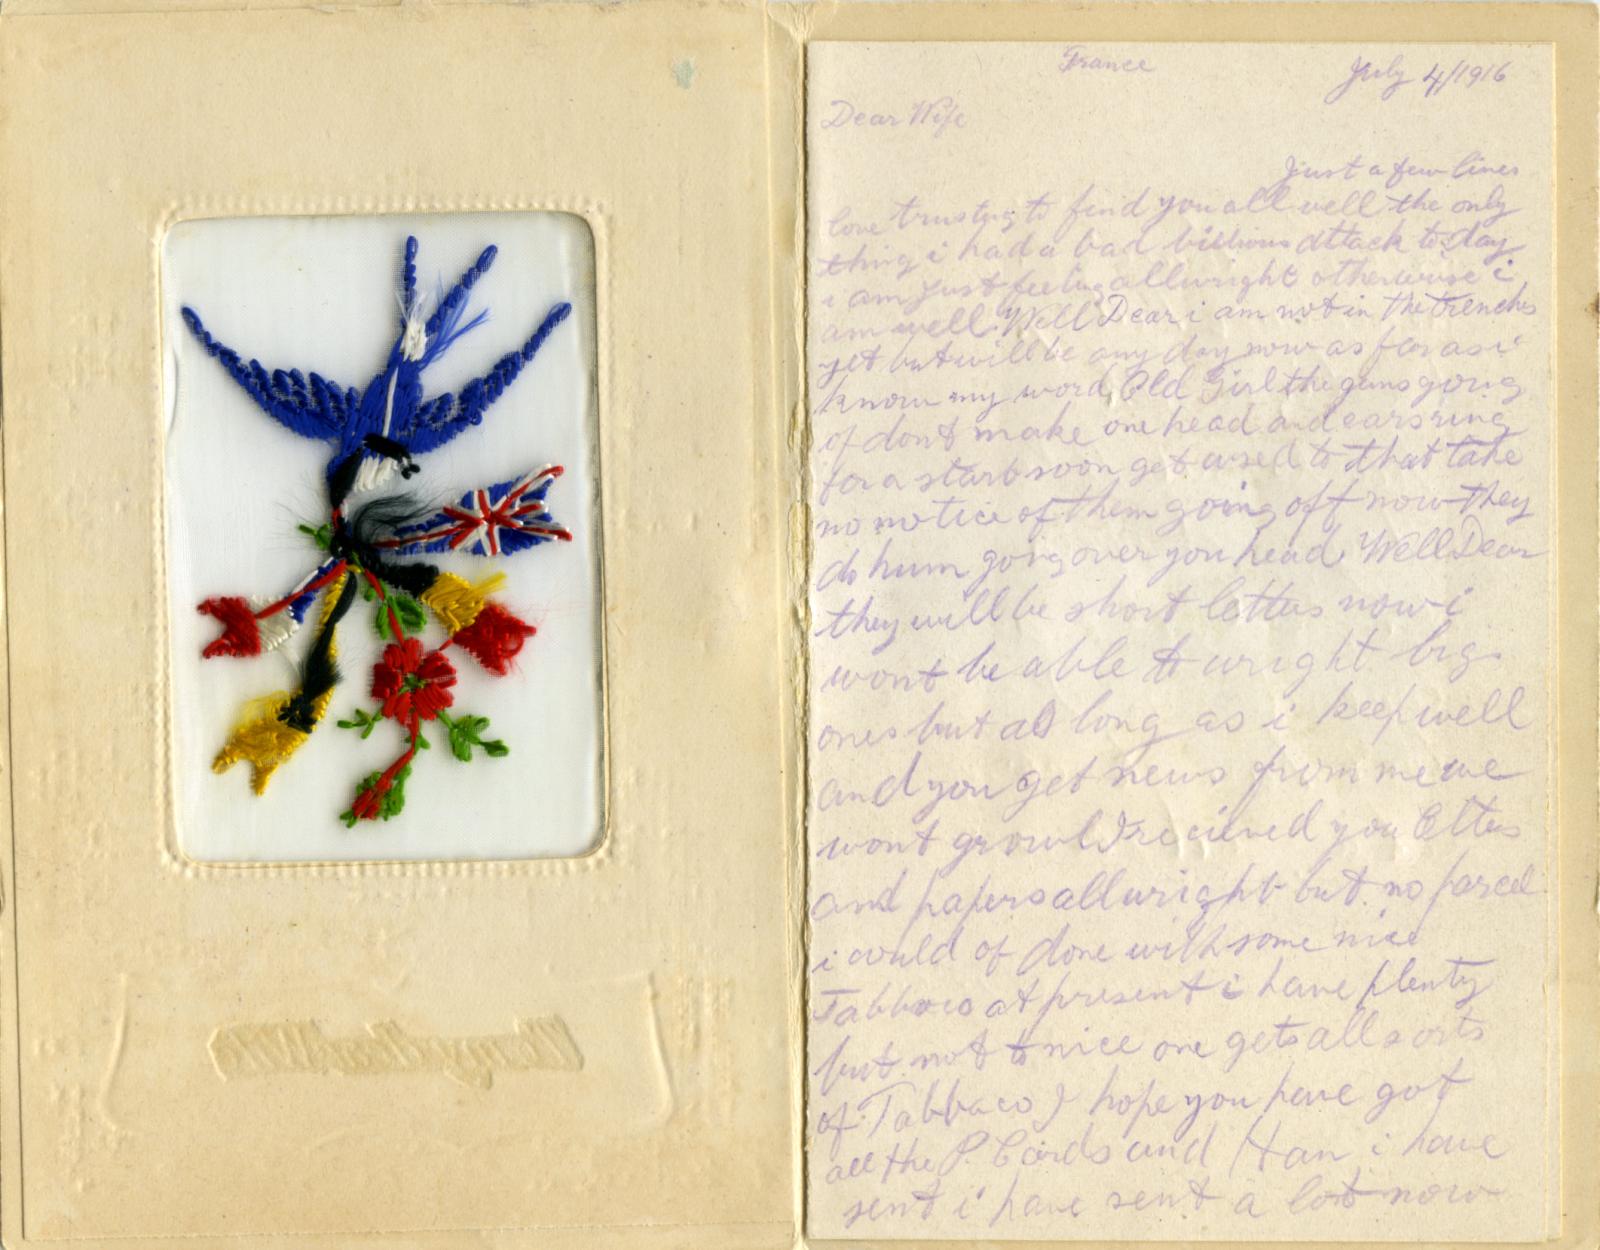 France
July 4/1916
Dear Wife
Just a few lines
love trusting to find you all well the only
thing i had a bad billious attack to day
i am just feeling allwright otherwise i
am well. Well Dear i am not in the trenches
yet but will be any day now as far as i
know my word Old Girl the guns going
of dont make one head and ears ring
for a start soon get used to that take
no notice of them going off now they
do hum going over you head Well Dear
they will be short letters now i
wont be able to wright big
ones but as long as i keep well
and you get news from me we
wont growl I recieved you letters
and papers all wright but no parcel
i could of done with some nice
Tabbaco at present i have plenty
but not to nice one gets all sorts
of Tabbaco I hope you have got
all the P. Cards and i have
sent i have sent a lot now